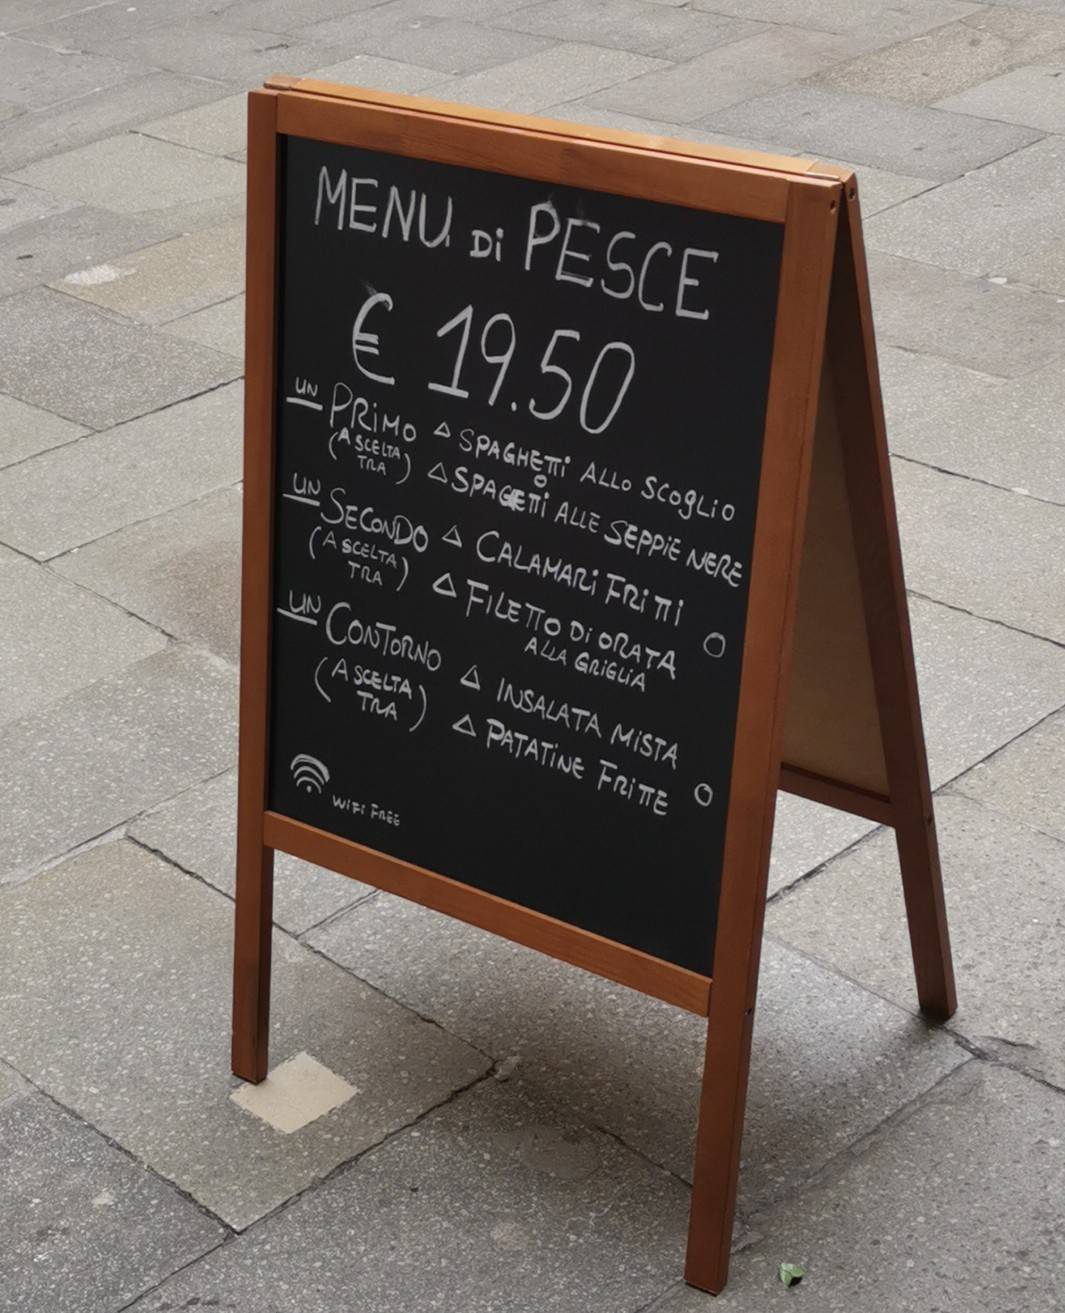 MENU di PESCE
€ 19.50
UN PRIMO △ SPAGHETTI ALLO SCOGLIO
(A SCELTA TRA) △ SPAGETTI ALLE SEPPIE NERE
UN SECONDO △ CALAMARI FRITTI
(A SCELTA TRA) △ FILETTO Di ORATA
ALLA GRIGLIA
UN CONTORNO △ INSALATA MISTA
(A SCELTA TRA) △ PATATINE FRITTE
WIFI FREE